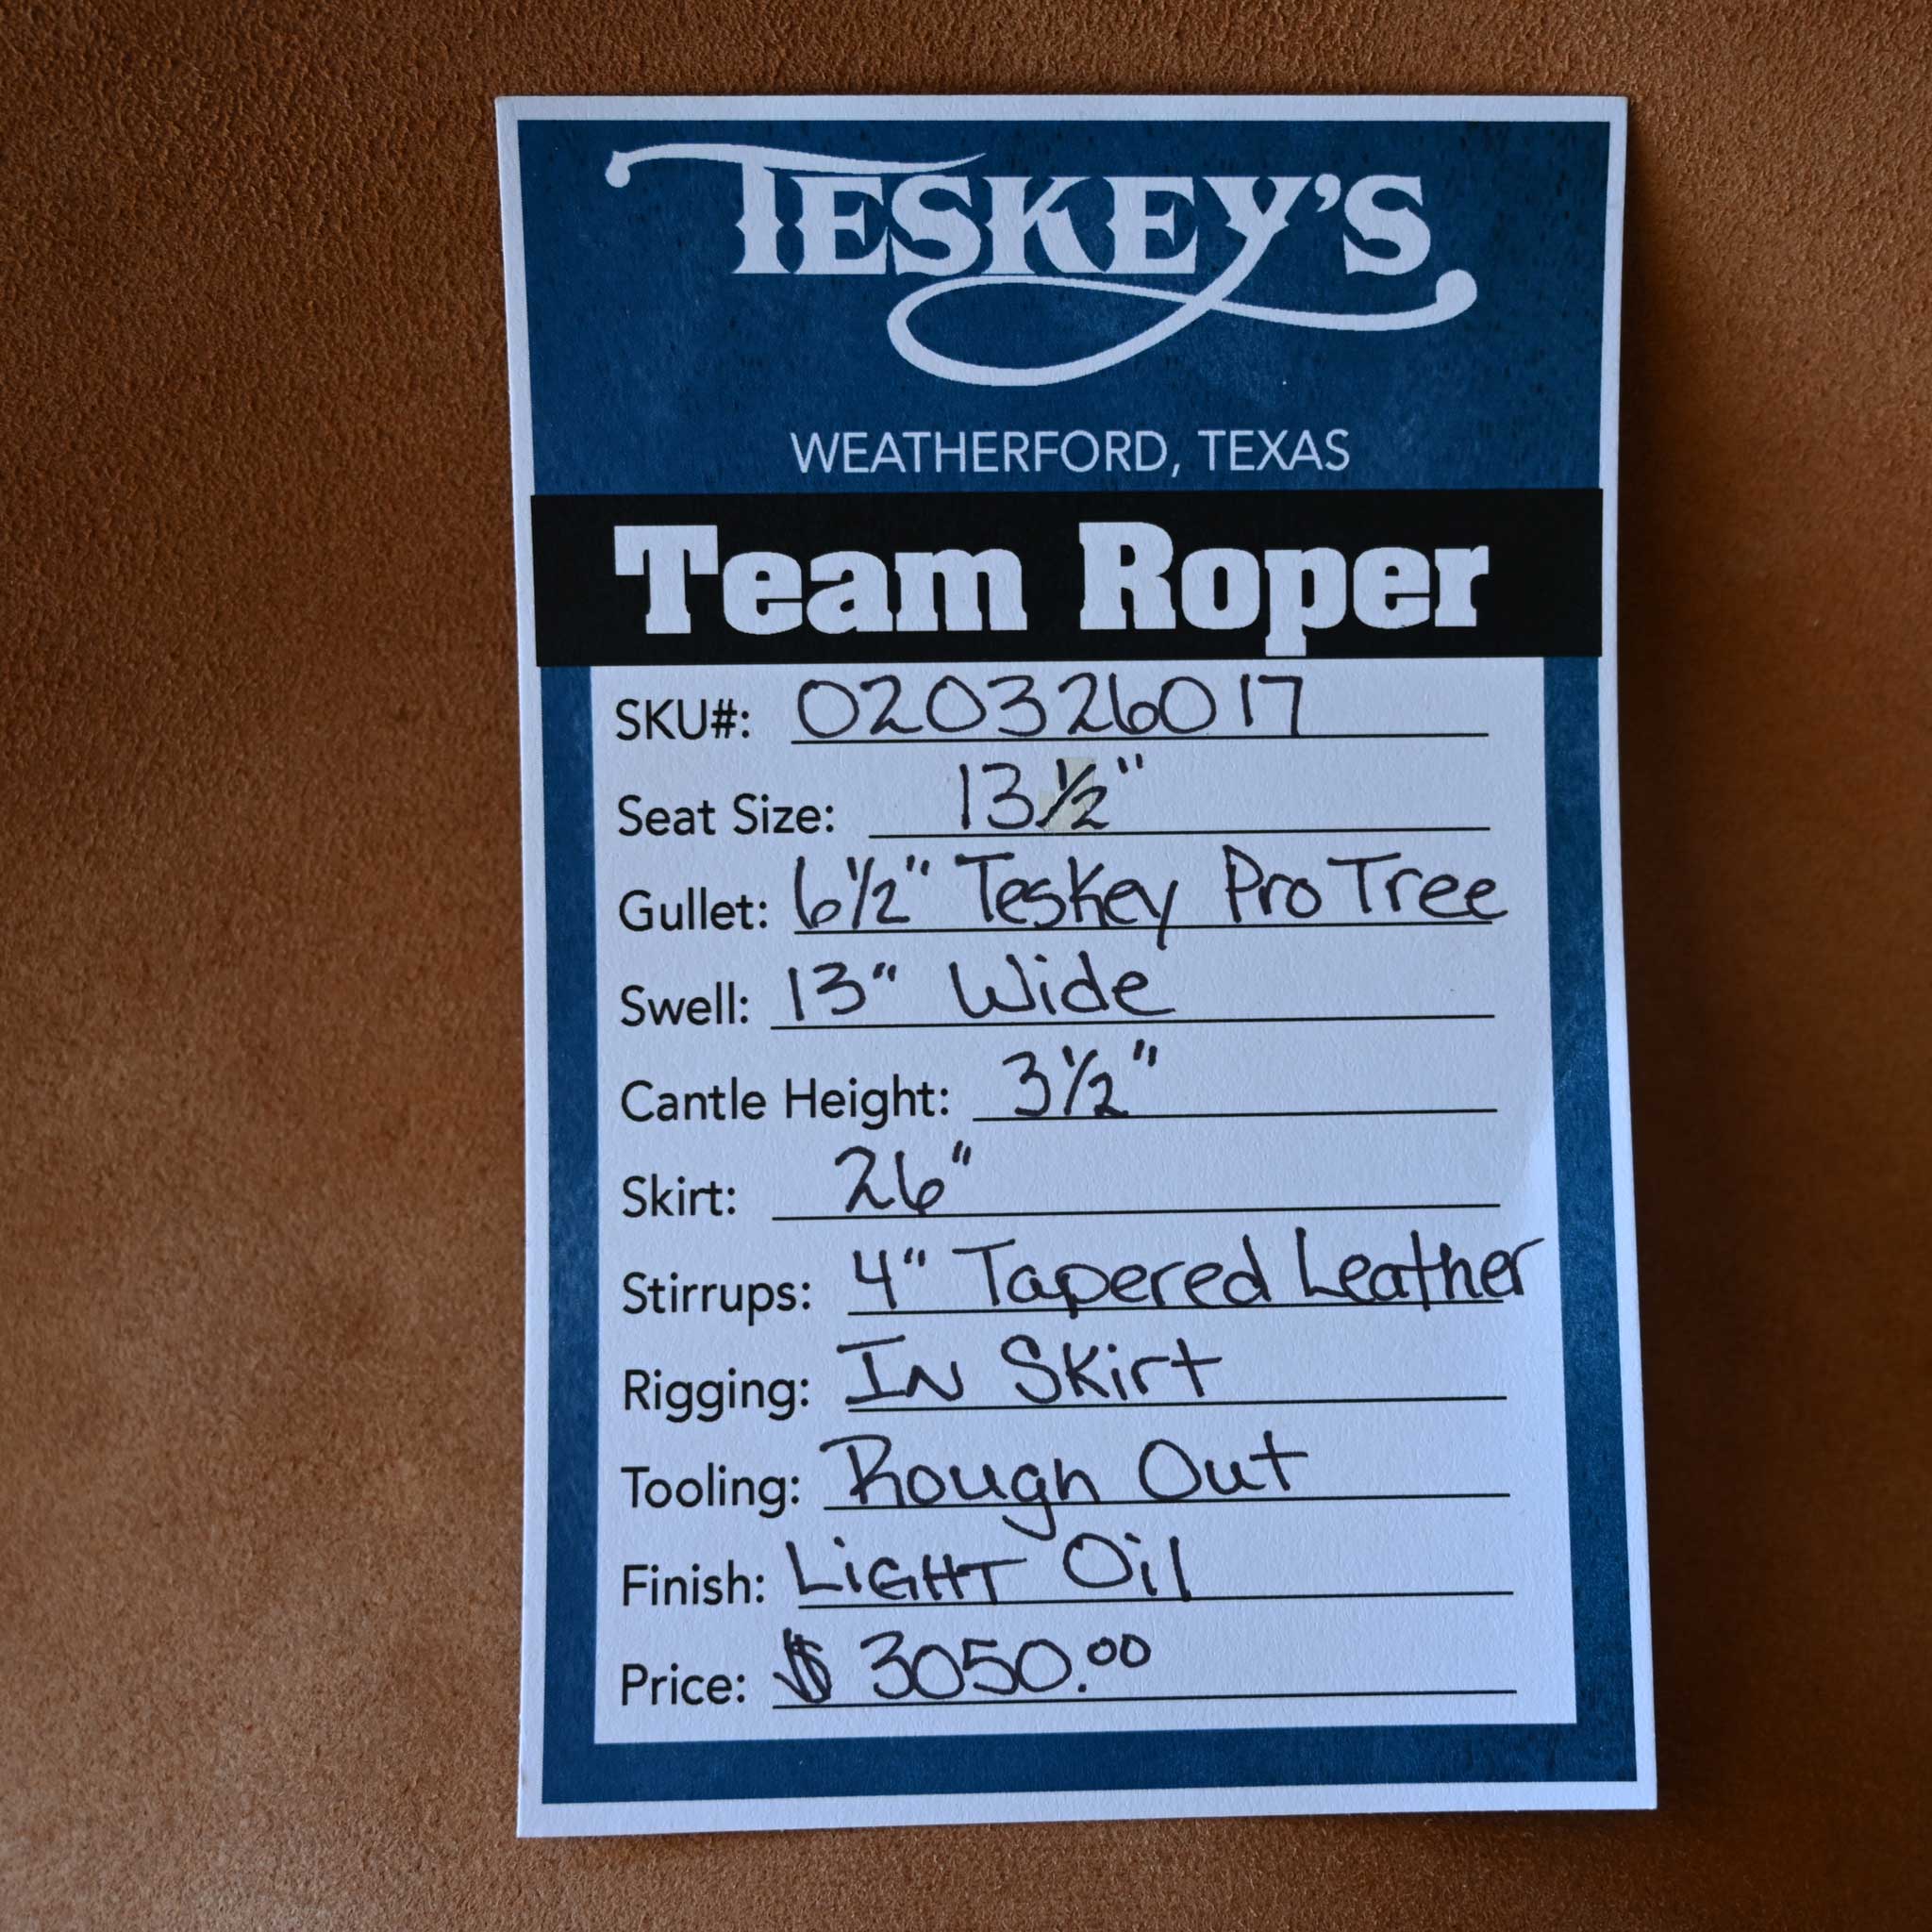 TESKEY'S
WEATHERFORD, TEXAS
Team Roper
SKU#: 020326017
Seat Size: 13½"
Gullet: 6½" Teskey Pro Tree
Swell: 13" Wide
Cantle Height: 3½"
Skirt: 26"
Stirrups: 4" Tapered Leather
Rigging: IN Skirt
Tooling: Rough Out
Finish: LiGHT Oil
Price: $ 3050.00